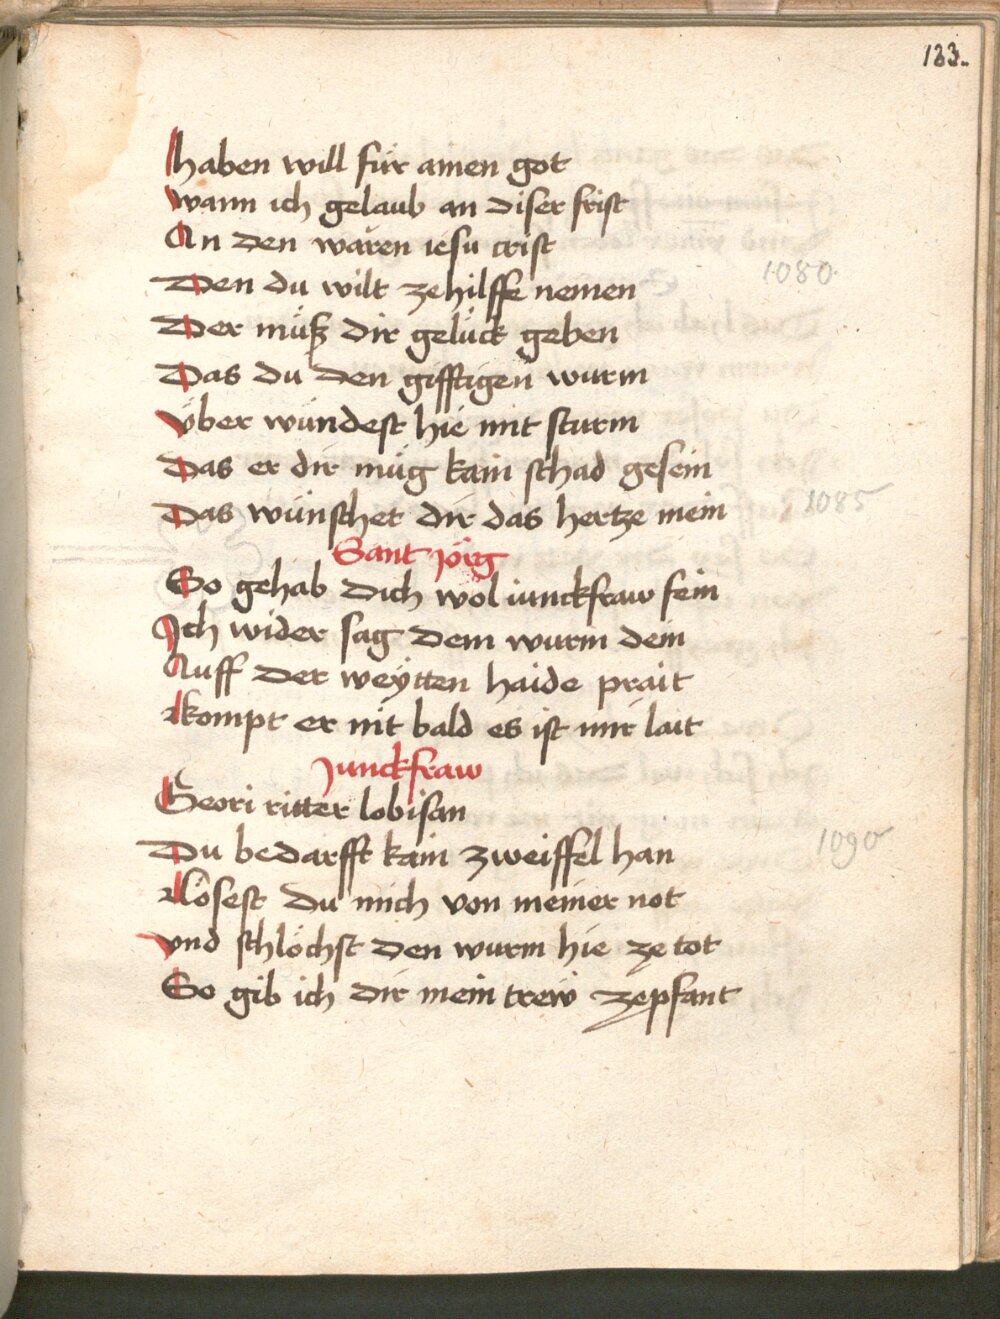 133.
haben will für amen got
wann ich gelaub an diser frist
An den waren iesu crist
1080.
Den du wilt zehilffe nemen
Der müß dir gelück geben
Das du den gifftigen wurm
über wündest hie mit sturm
Das er dir müg kain schad gesein
1085
Das wünschet dir das hertze mein
Sant jörg
So gehab dich wol iunckfraw fein
Ich wider sag dem wurm dein
Auff der weÿtten haide prait
kompt er nit bald es ist mir lait
Junckfraw
Geori ritter lobisan
1090
Du bedarfft kain zweiffel han
lösest du mich von meiner not
vnd schlöchst den wurm hie ze tot
So gib ich dir mein trew zepfant